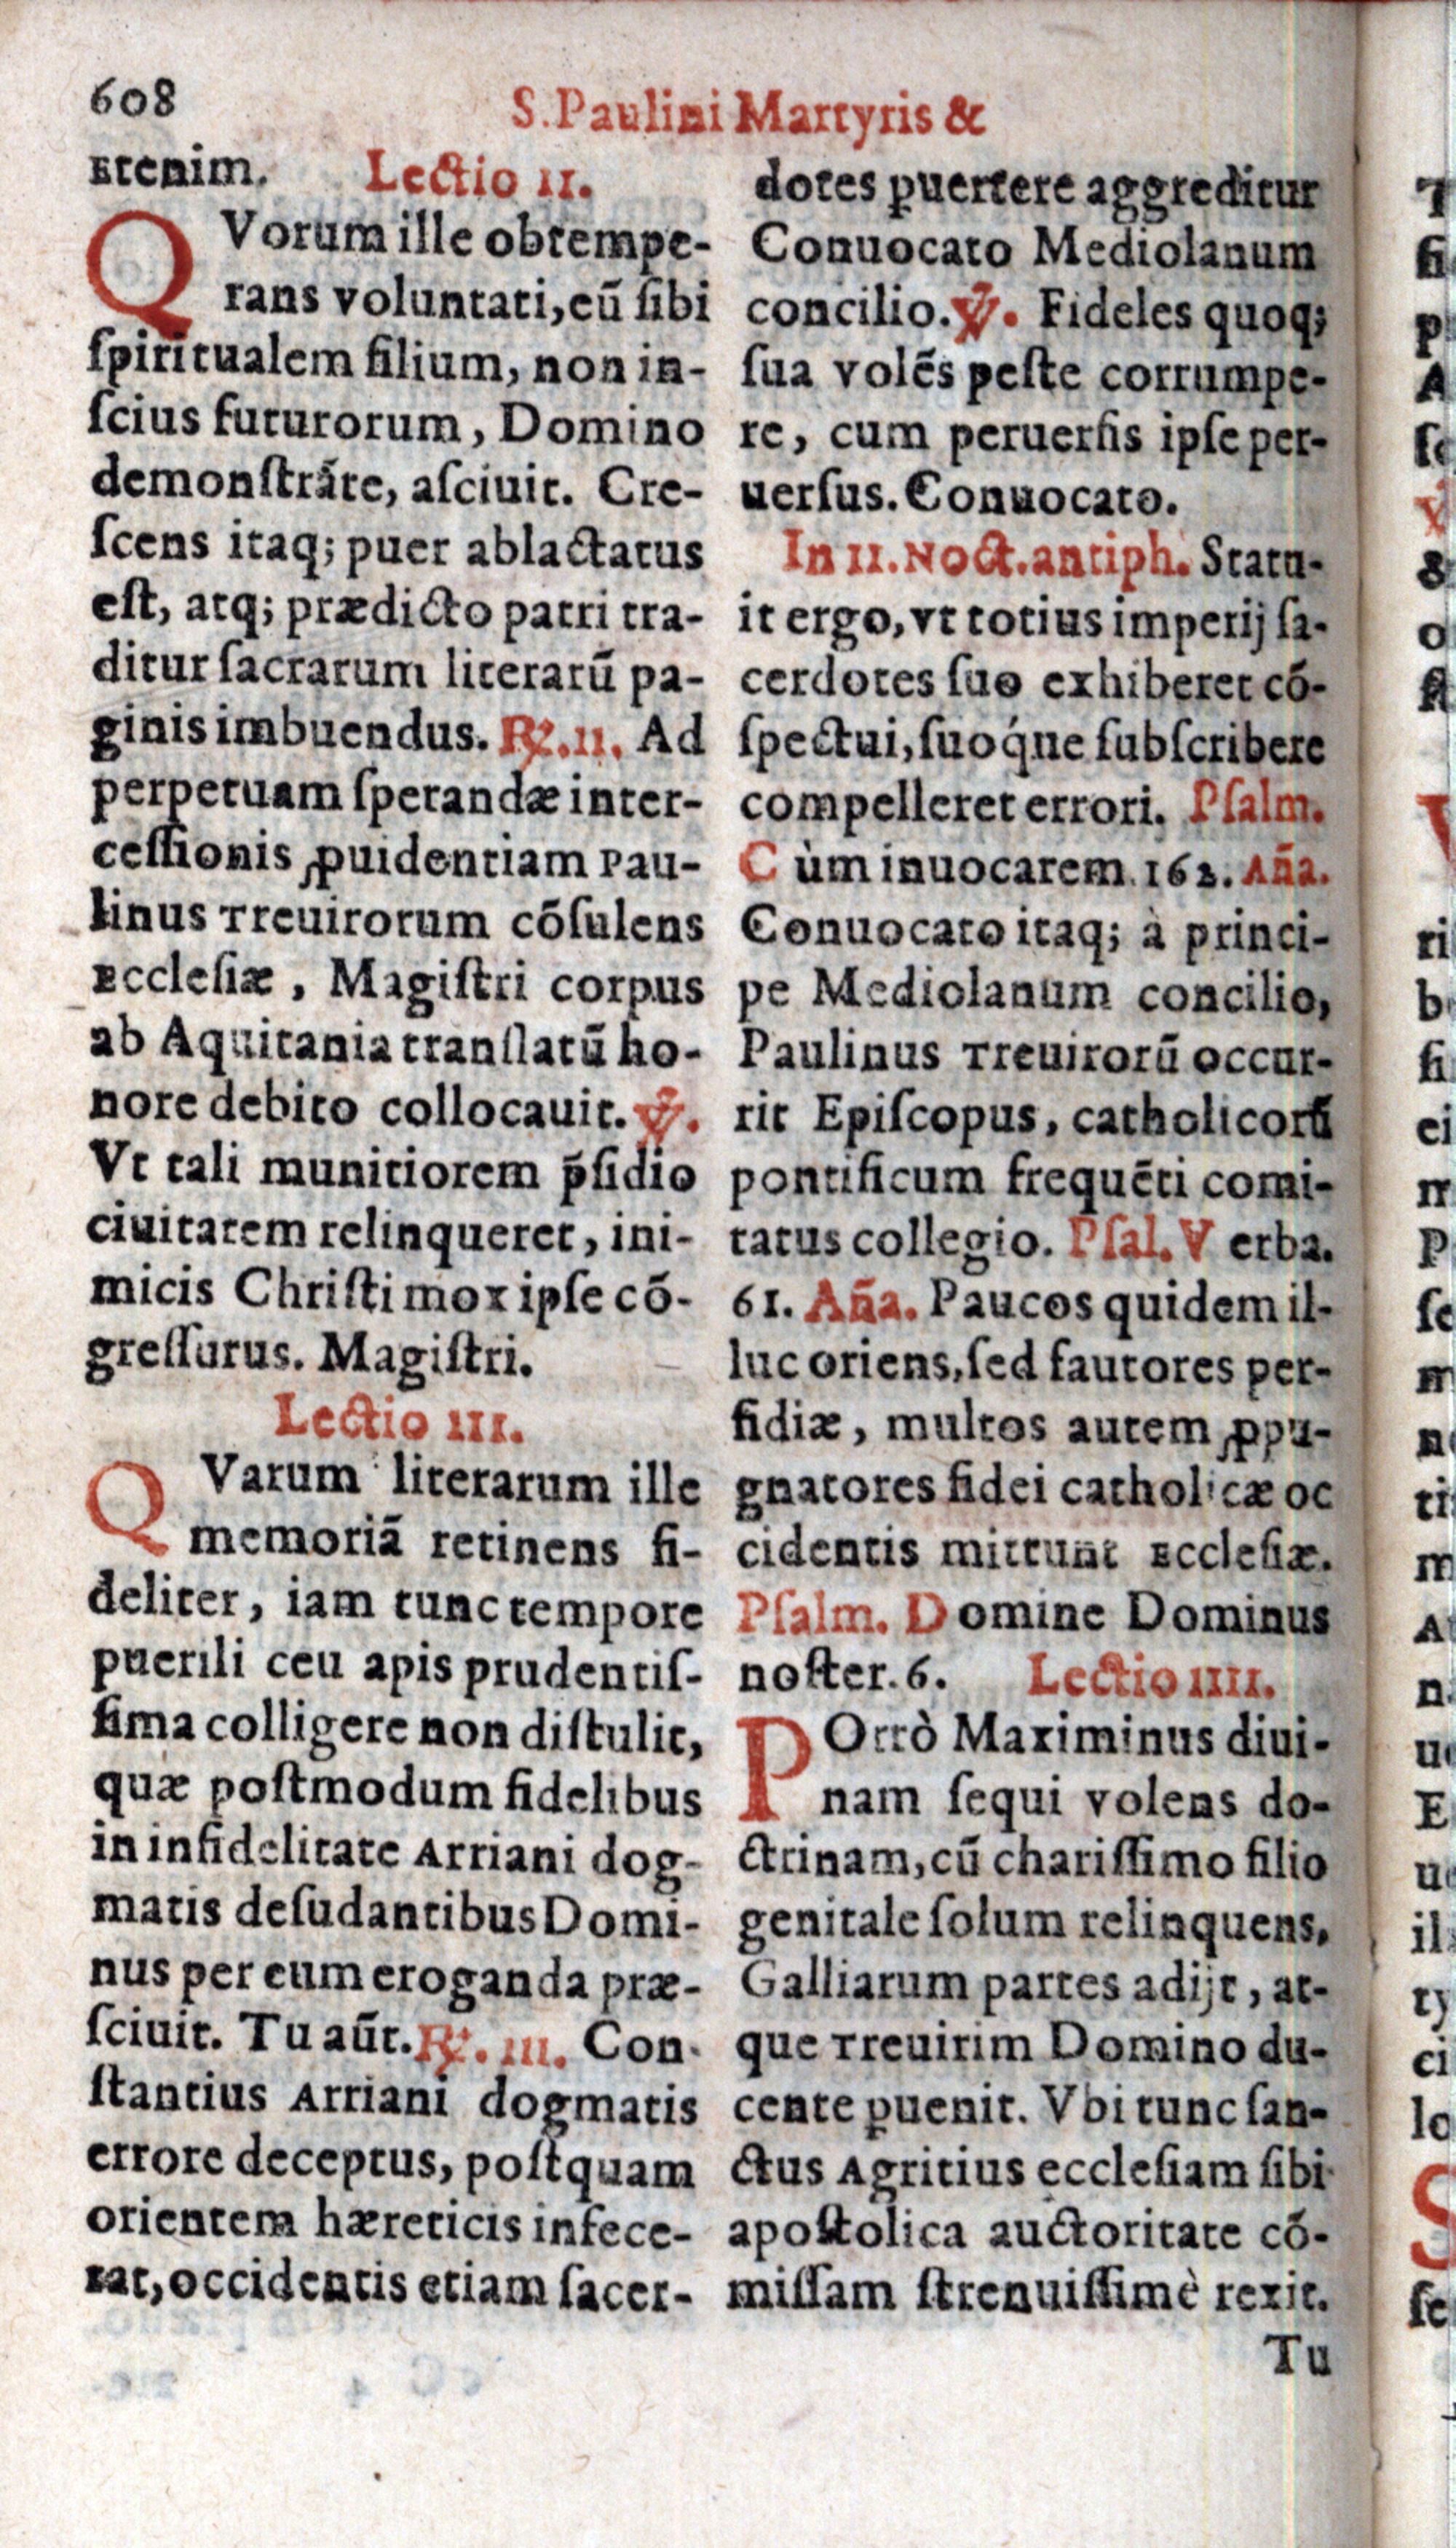 608
S. Paulini Martyris &
Etenim. Lectio II.
QVorum ille obtempe-
rans voluntati, eū ſibi
ſpiritualem filium, non in-
ſcius futurorum, Domino
demonſtrāte, aſciuit. Cre-
ſcens itaq; puer ablactatus
eſt, atq; prædicto patri tra-
ditur ſacrarum literarū pa-
ginis imbuendus. ℟. II. Ad
perpetuam ſperandæ inter-
ceſſionis ꝓuidentiam Pau-
linus Treuirorum cōſulens
Eccleſiæ, Magiſtri corpus
ab Aquitania tranſlatū ho-
nore debito collocauit. ℣.
Vt tali munitiorem p̄ſidio
ciuitatem relinqueret, ini-
micis Chriſti mox ipſe cō-
greſſurus. Magiſtri.
Lectio III.
QVarum literarum ille
memoriā retinens fi-
deliter, iam tunc tempore
puerili ceu apis prudentiſ-
ſima colligere non diſtulit,
quæ poſtmodum fidelibus
in infidelitate Arriani dog-
matis deſudantibus Domi-
nus per eum eroganda præ-
ſciuit. Tu aūt. ℟. III. Con-
ſtantius Arriani dogmatis
errore deceptus, poſtquam
orientem hæreticis infece-
rat, occidentis etiam ſacer-
dotes ꝑuertere aggreditur
Conuocato Mediolanum
concilio. ℣. Fideles quoq;
ſua volēs peſte corrumpe-
re, cum peruerſis ipſe per-
uerſus. Conuocato.
In II. Noct. antiph. Statu-
it ergo, vt totius imperij ſa-
cerdotes ſuo exhiberet cō-
ſpectui, ſuoq́ue ſubſcribere
compelleret errori. Pſalm.
Cùm inuocarem. 162. Añā.
Conuocato itaq; à princi-
pe Mediolanum concilio,
Paulinus Treuirorū occur-
rit Epiſcopus, catholicorū
pontificum frequēti comi-
tatus collegio. Pſal. Verba.
61. Aña. Paucos quidem il-
luc oriens, ſed fautores per-
fidiæ, multos autem ꝓpu-
gnatores fidei catholicæ oc
cidentis mittunt Eccleſiæ.
Pſalm. Domine Dominus
noſter. 6. Lectio IIII.
POrrò Maximinus diui-
nam ſequi volens do-
ctrinam, cū chariſſimo filio
genitale ſolum relinquens,
Galliarum partes adijt, at-
que Treuirim Domino du-
cente ꝑuenit. Vbi tunc ſan-
ctus Agritius eccleſiam ſibi
apoſtolica auctoritate cō-
miſſam ſtrenuiſſimè rexit.
Tu